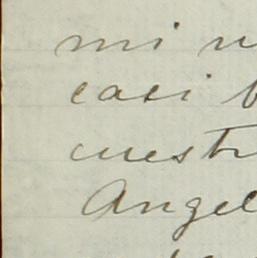 mi
casi
cuestr
Angel